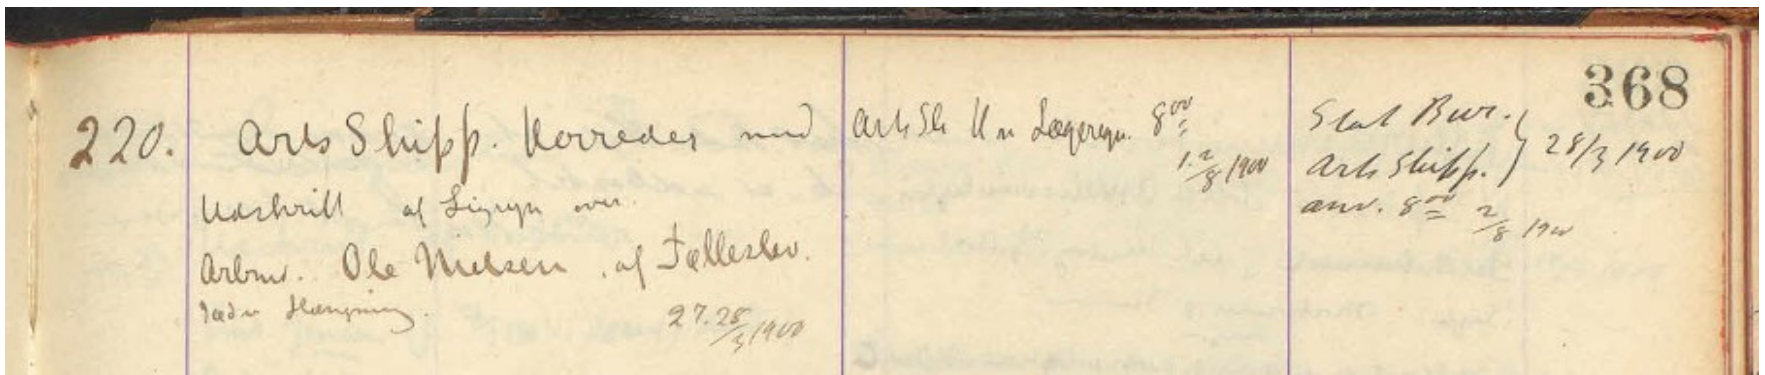 368
220. Arts Skipp. Horredes med
Udskrift af Ligsyn over
Arbmd. Ole Nielsen, af Følleslev.
død v Hængning.
27.28/3 1900
Arts He H m Lægeregn. 8 00
1.2/8 1900
Stat Bur.
Arts Skipp. } 28/3 1900
anv. 8 00 2/8 1900